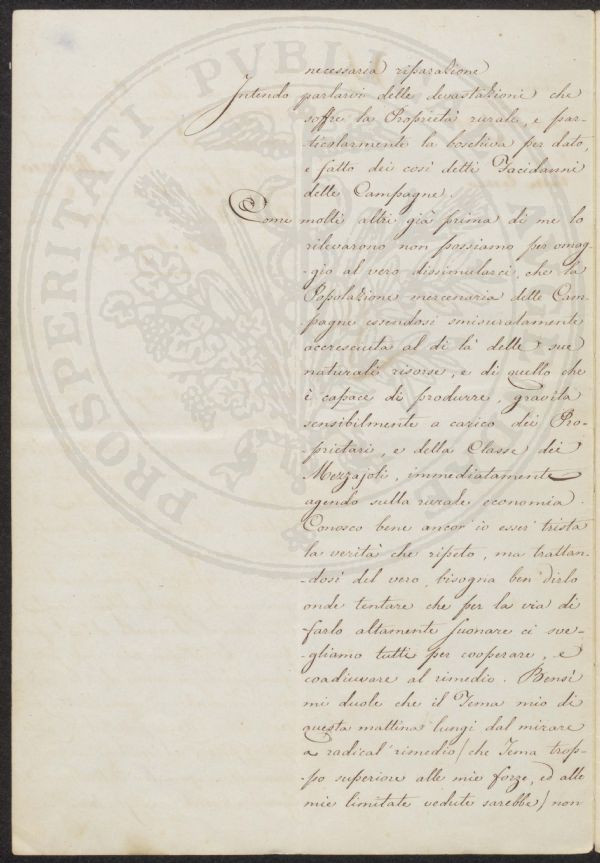 necessaria riparazione
Intendo parlarvi delle devastazioni che
soffre la Proprietà rurale, e par-
-ticolarmente la boschiva per dato,
e fatto dei così detti Facidanni
delle Campagne.
Come molti altri già prima di me lo
rilevarono non possiamo per omag-
-gio al vero dissimularci, che la
Popolazione mercenaria delle Cam-
pagne essendosi smisuratamente
accresciuta al di là delle sue
naturali risorse, e di quello che
è capace di produrre, gravita
sensibilmente a carico dei Pro-
-prietari, e della Classe dei
Mezzajoli, immediatamente
agendo sulla rurale economia.
Conosco bene ancor' io esser' trista
la verità che ripeto, ma trattan-
-dosi del vero, bisogna ben dirlo
onde tentare che per la via di
farlo altamente suonare ci sve-
-gliamo tutti per cooperare, e
coadiuvare al rimedio. Bensì
mi duole che il Tema mio di
questa mattina lungi dal mirare
a radical' rimedio / che Tema trop-
-po superiore alle mie forze, ed alle
mie limitate vedute sarebbe / non
PROSPERITATI PVBLI